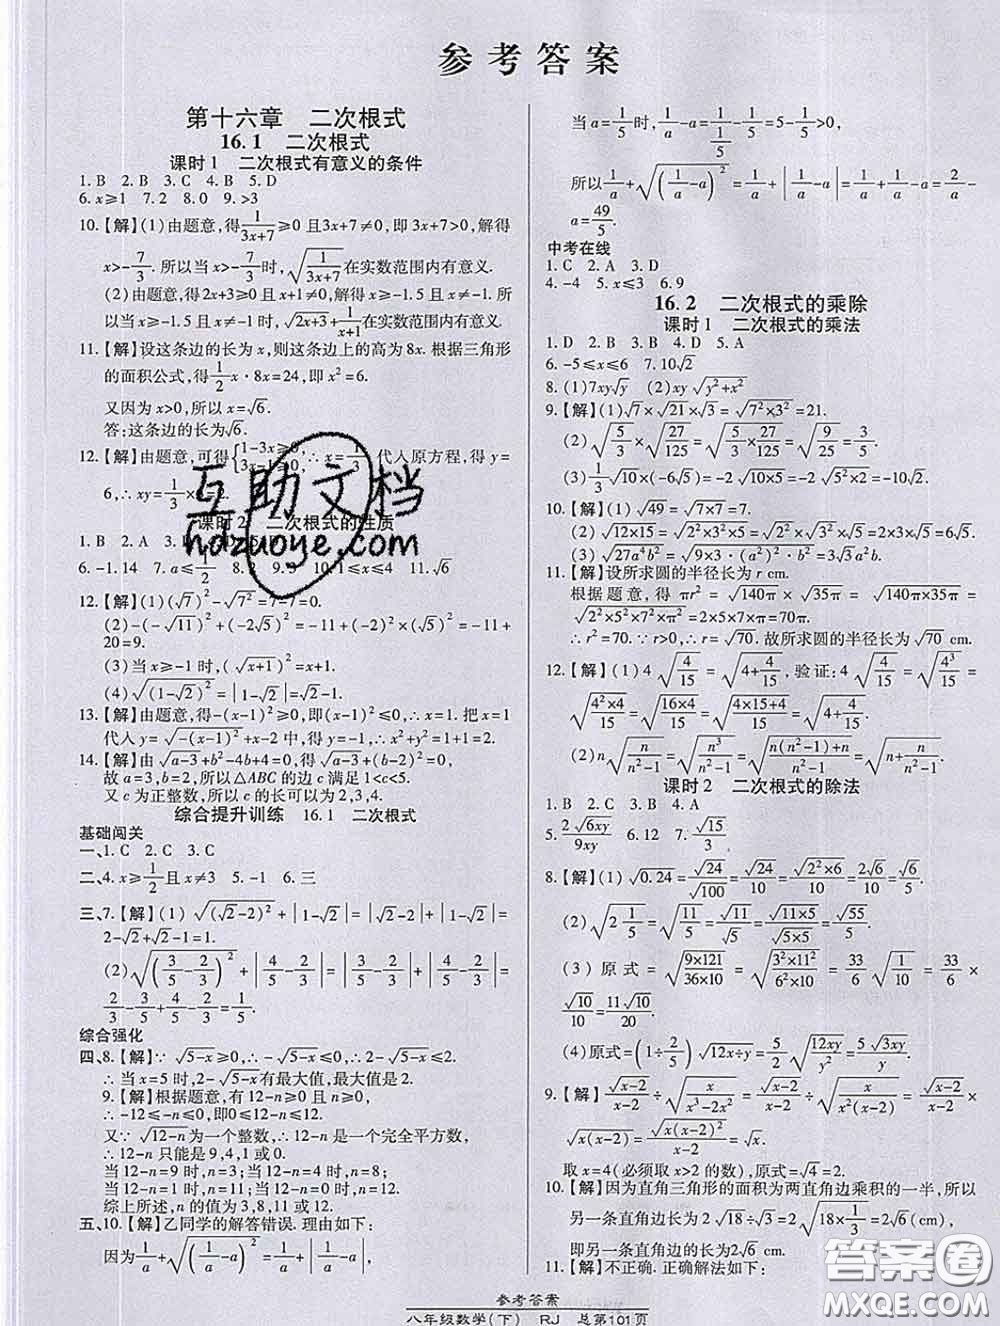 参考答案
第十六章 二次根式
16.1 二次根式
课时1 二次根式有意义的条件
1.B 2.B 3.C 4.B 5.D
6.x≥1 7.2 8.0 9.>3
10.【解】(1)由题意,得1/(3x+7)≥0且3x+7≠0,即3x+7>0,解得
x>-7/3. 所以当x>-7/3时,√(1/(3x+7))在实数范围内有意义.
(2)由题意,得2x+3≥0且x+1≠0,解得x≥-1.5且x≠-1.
所以当x≥-1.5且x≠-1时,√(2x+3)+1/(x+1)在实数范围内有意义.
11.【解】设这条边的长为x,则这条边上的高为8x. 根据三角形
的面积公式,得1/2x·8x=24,即x²=6.
又因为x>0,所以x=√6.
答:这条边的长为√6.
12.【解】由题意,可得{1-3x≥0, 3x-1≥0, ∴x=1/3. 代入原方程,得y=
6,∴xy=1/3×
课时2 二次根式的性质
1.B 2.A 3. 5.
6.-1.14 7.a≤1/2 8. 9. 10.1≤x≤4 11.√6
12.【解】(1)(√7)²-√7²=7-7=0.
(2)-(-√11)²+(-2√5)²=-11+(-2)²×(√5)²=-11+
20=9.
(3)当x≥-1时,(√(x+1))²=x+1.
(4)√((1-√2)²)=|1-√2|=√2-1.
13.【解】由题意,得-(x-1)²≥0,即(x-1)²≤0,∴x=1. 把x=1
代入y=√(-(x-1)²)+x-2中,得y=-1,∴x²+y²=1+1=2.
14.【解】由√(a-3)+b²-4b+4=0,得√(a-3)+(b-2)²=0,
故a=3,b=2,所以△ABC的边c满足1<c<5.
又c为正整数,所以c的长可以为2,3,4.
综合提升训练 16.1 二次根式
基础闯关
一、1.C 2.C 3.C
二、4.x≥1/2且x≠3 5.-1 6.三
三、7.【解】(1)√((√2-2)²)+|1-√2|=|√2-2|+|1-√2|=
2-√2+√2-1=1.
(2)√((3/5-2/3)²)+|4/5-2/3|=|3/5-2/3|+|4/5-2/3|=
2/3-3/5+4/5-2/3=1/5.
综合强化
四、8.【解】∵√(5-x)≥0,∴-√(5-x)≤0,∴2-√(5-x)≤2.
∴当x=5时,2-√(5-x)有最大值,最大值为2.
9.【解】根据题意,有12-n≥0且n≥0,
∴-12≤-n≤0,即0≤12-n≤12.
又∵√(12-n)为一个整数,∴12-n是一个完全平方数,
∴12-n只能是9,4,1或0.
当12-n=9时,n=3;当12-n=4时,n=8;
当12-n=1时,n=11;当12-n=0时,n=12.
综上所述,n的值为3,8,11或12.
五、10.【解】乙同学的解答错误. 理由如下:
因为1/a+√((1/a-a)²)=1/a+|1/a-a|,
当a=1/5时,1/a-a=1/(1/5)-1/5=5-1/5>0,
所以1/a+√((1/a-a)²)=1/a+|1/a-a|=1/a+1/a-a=2/a-
a=49/5.
中考在线
1.C 2.A 3.D
4.-4 5.x≤3 6.9
16.2 二次根式的乘除
课时1 二次根式的乘法
1.D 2.B 3.B 4.D 5.A
6.-5≤x≤6 7.10√2
8.(1)7xy√y (2)xy√(y²+x²)
9.【解】(1)√7×√21×√3=√(7²×3²)=21.
(2)√(5/3)×√(27/125)=√(5/3×27/125)=√(9/25)=3/5.
(3)1/3√10×(-6√5)=-2√50=-2×5√2=-10√2.
10.【解】(1)√49=√(7×7)=7.
(2)√(12×15)=√(2²×3²×5)=√2²×√3²×√5=2×3×√5=6√5.
(3)√(27a⁴b²)=√(9×3·(a²)²·b²)=3√3a²b.
11.【解】设所求圆的半径长为r cm.
根据题意,得πr²=√(140π)×√(35π)=√(140π×35π)=
√(2²×5²×7²×π²)=2×5×7×π=70π.
∴r²=70.∵r>0,∴r=√70.故所求圆的半径长为√70 cm.
12.【解】(1)4√(4/15)=√(4+4/15),验证:4√(4/15)=√(4³/15)=
√(4²×4/15)=√(16×4/15)=√((4×15+4)/15)=√(4+4/15).
(2)n√(n/(n²-1))=√(n³/(n²-1))=√((n(n²-1)+n)/(n²-1))=√(n+n/(n²-1))
课时2 二次根式的除法
1.B 2.C 3.B 4.A
5.2√(6xy)/9xy 6.12 7.√15/3
8.【解】(1)√0.24=√24/√100=√24/10=√(2²×6)/10=2√6/10=√6/5.
(2)√(2 1/5)=√(11/5)=√11/√5=√(11×5)/√(5×5)=√55/5.
(3)原式=√((9×121)/(36×10))=√((3²×11²)/(6²×10))=33/6√(1/10)=33/6×
√10/10=11√10/20.
(4)原式=(1÷2/5)√(12x÷y)=5/2√(12xy/y²)=5√(3xy)/y.
9.【解】√(x-2)/(x-2)÷√(x/(x³-2x²))=√(x-2)/(x-2)÷√(x/(x²(x-2)))=√(x-2)/(x-2)×
√(x(x-2))=√(x(x-2)²)/(x-2)=√x.
取x=4(必须取x>2的数),原式=√4=2.
10.【解】因为直角三角形的面积为两直角边乘积的一半,所以
另一条直角边的长为2√18÷√3=2√(18×1/3)=2√6(cm),
即另一条直角边的长为2√6 cm.
11.【解】不正确. 正确解法如下:
互助文档
hdzuoye.com
答案圈
MXQE.COM
参考答案
八年级数学(下) RJ 总第101页